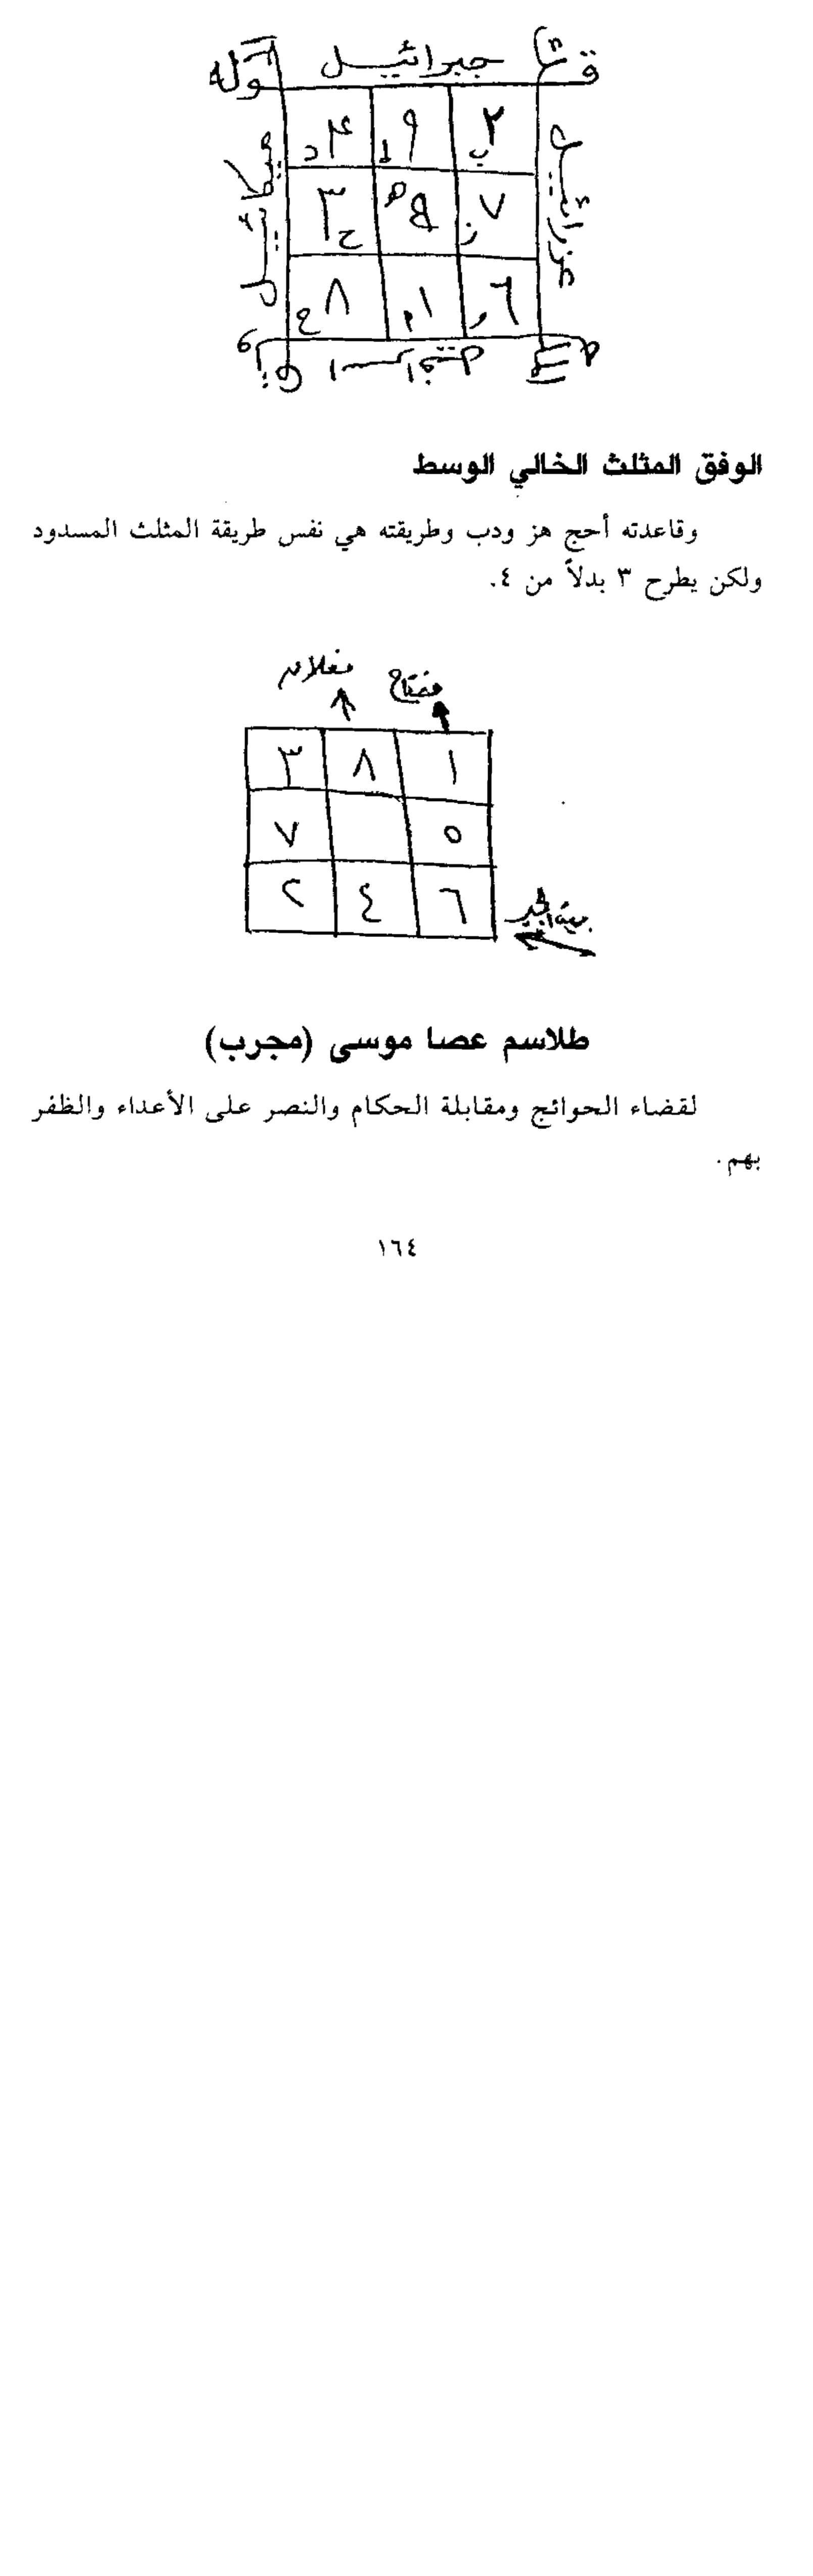 جبرائيل
٤ ٩ ٢
د ط ب
ميكائيل
عزرائيل
٣ ٥ ٧
ح ه ز
٨ ١ ٦
الوفق المثلث الخالي الوسط
وقاعدته أحج هز ودب وطريقته هي نفس طريقة المثلث المسدود
ولكن يطرح ٣ بدلاً من ٤.
مغلاق مفتاح
٣ ٨ ١
٧ ٥
٢ ٤ ٦
طلاسم عصا موسى (مجرب)
لقضاء الحوائج ومقابلة الحكام والنصر على الأعداء والظفر
بهم.
١٦٤